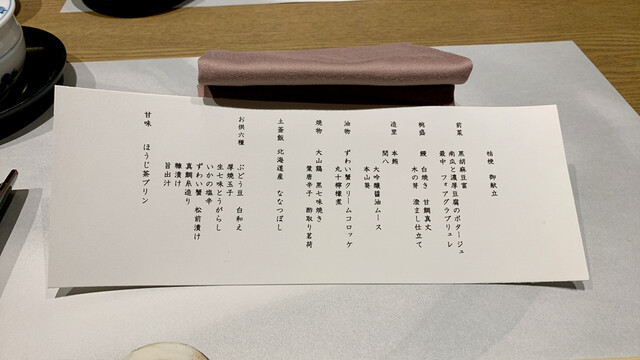 桔梗 御献立
前菜 黒胡麻豆富
南瓜と濃厚豆腐のポタージュ
最中 フォアグラブリュレ
椀盛 鰻 白焼き 甘鯛真丈
木の芽 澄まし仕立て
造里 本鮪 大吟醸醤油ムース
間八 本山葵
油物 ずわい蟹クリームコロッケ
丸十檸檬煮
焼物 大山鶏 黒七味焼き
葉唐辛子 酢取り茗荷
土釜飯 北海道産 ななつぼし
お供六種 ぶどう豆 白和え
厚焼玉子
生七味とうがらし
いかの塩辛
ずわい蟹 松前漬け
真鯛糸造り
糠漬け
旨出汁
甘味 ほうじ茶プリン